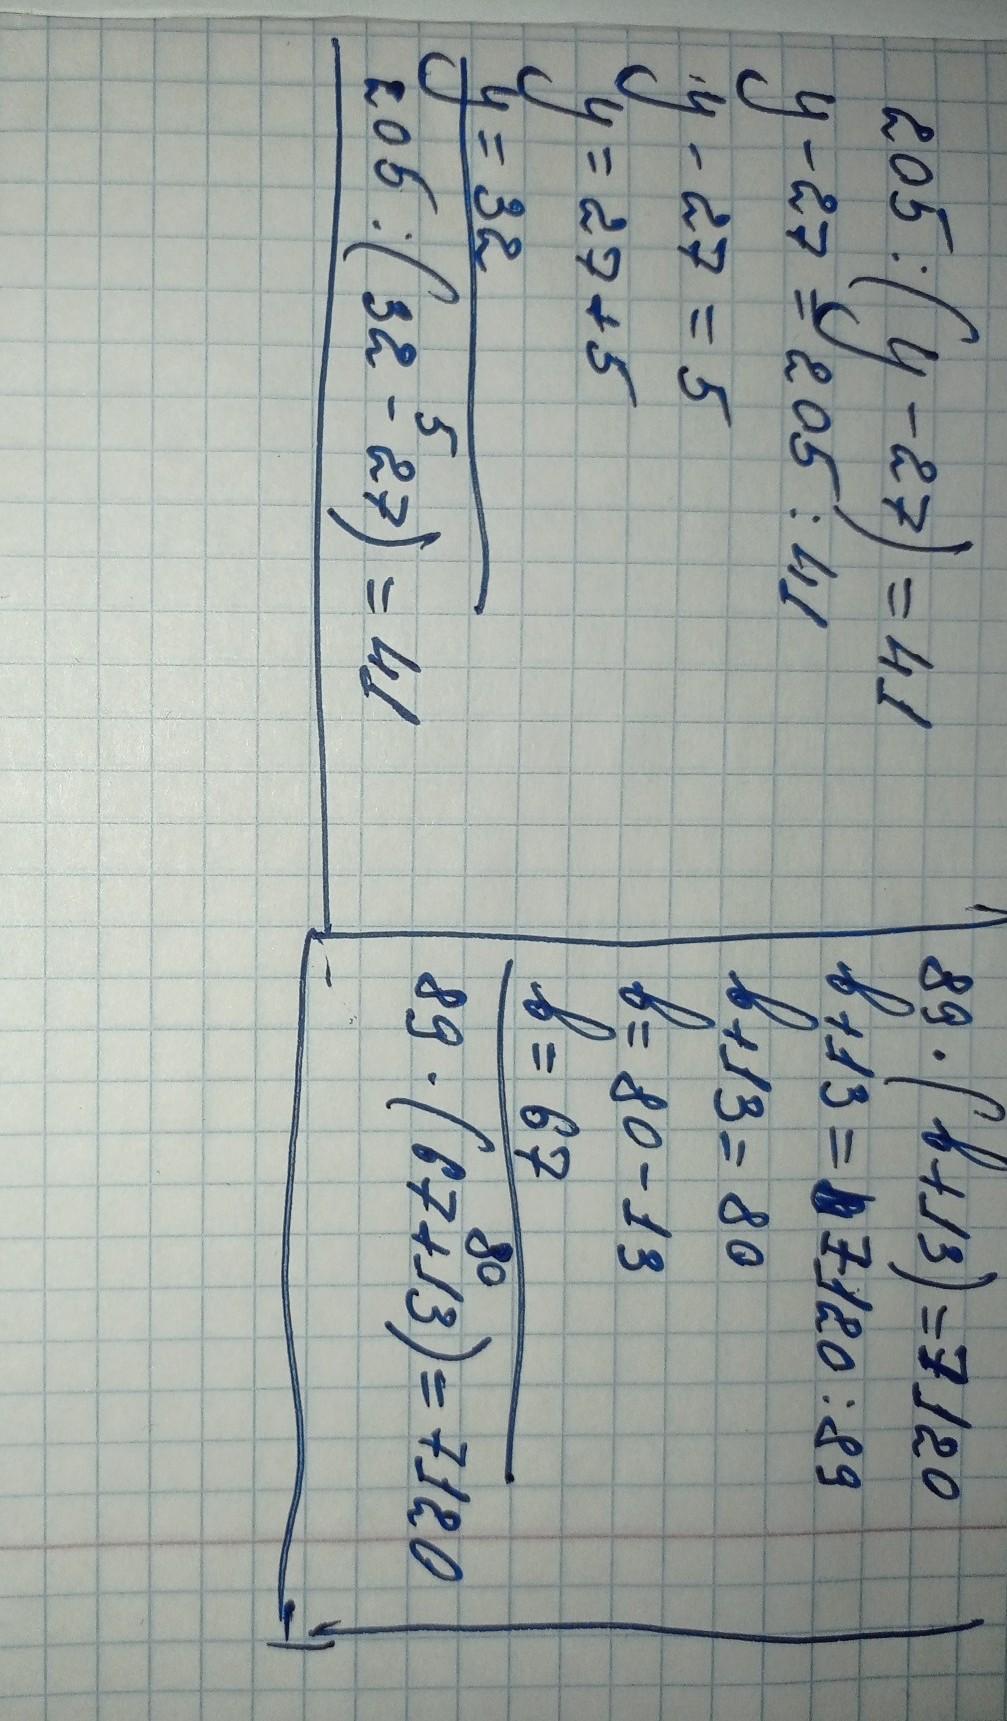 205 : (y - 27) = 41
y - 27 = 205 : 41
y - 27 = 5
y = 27 + 5
y = 32
5
205 : (32 - 27) = 41
89 · (b + 13) = 7120
b + 13 = 7120 : 89
b + 13 = 80
b = 80 - 13
b = 67
80
89 · (67 + 13) = 7120